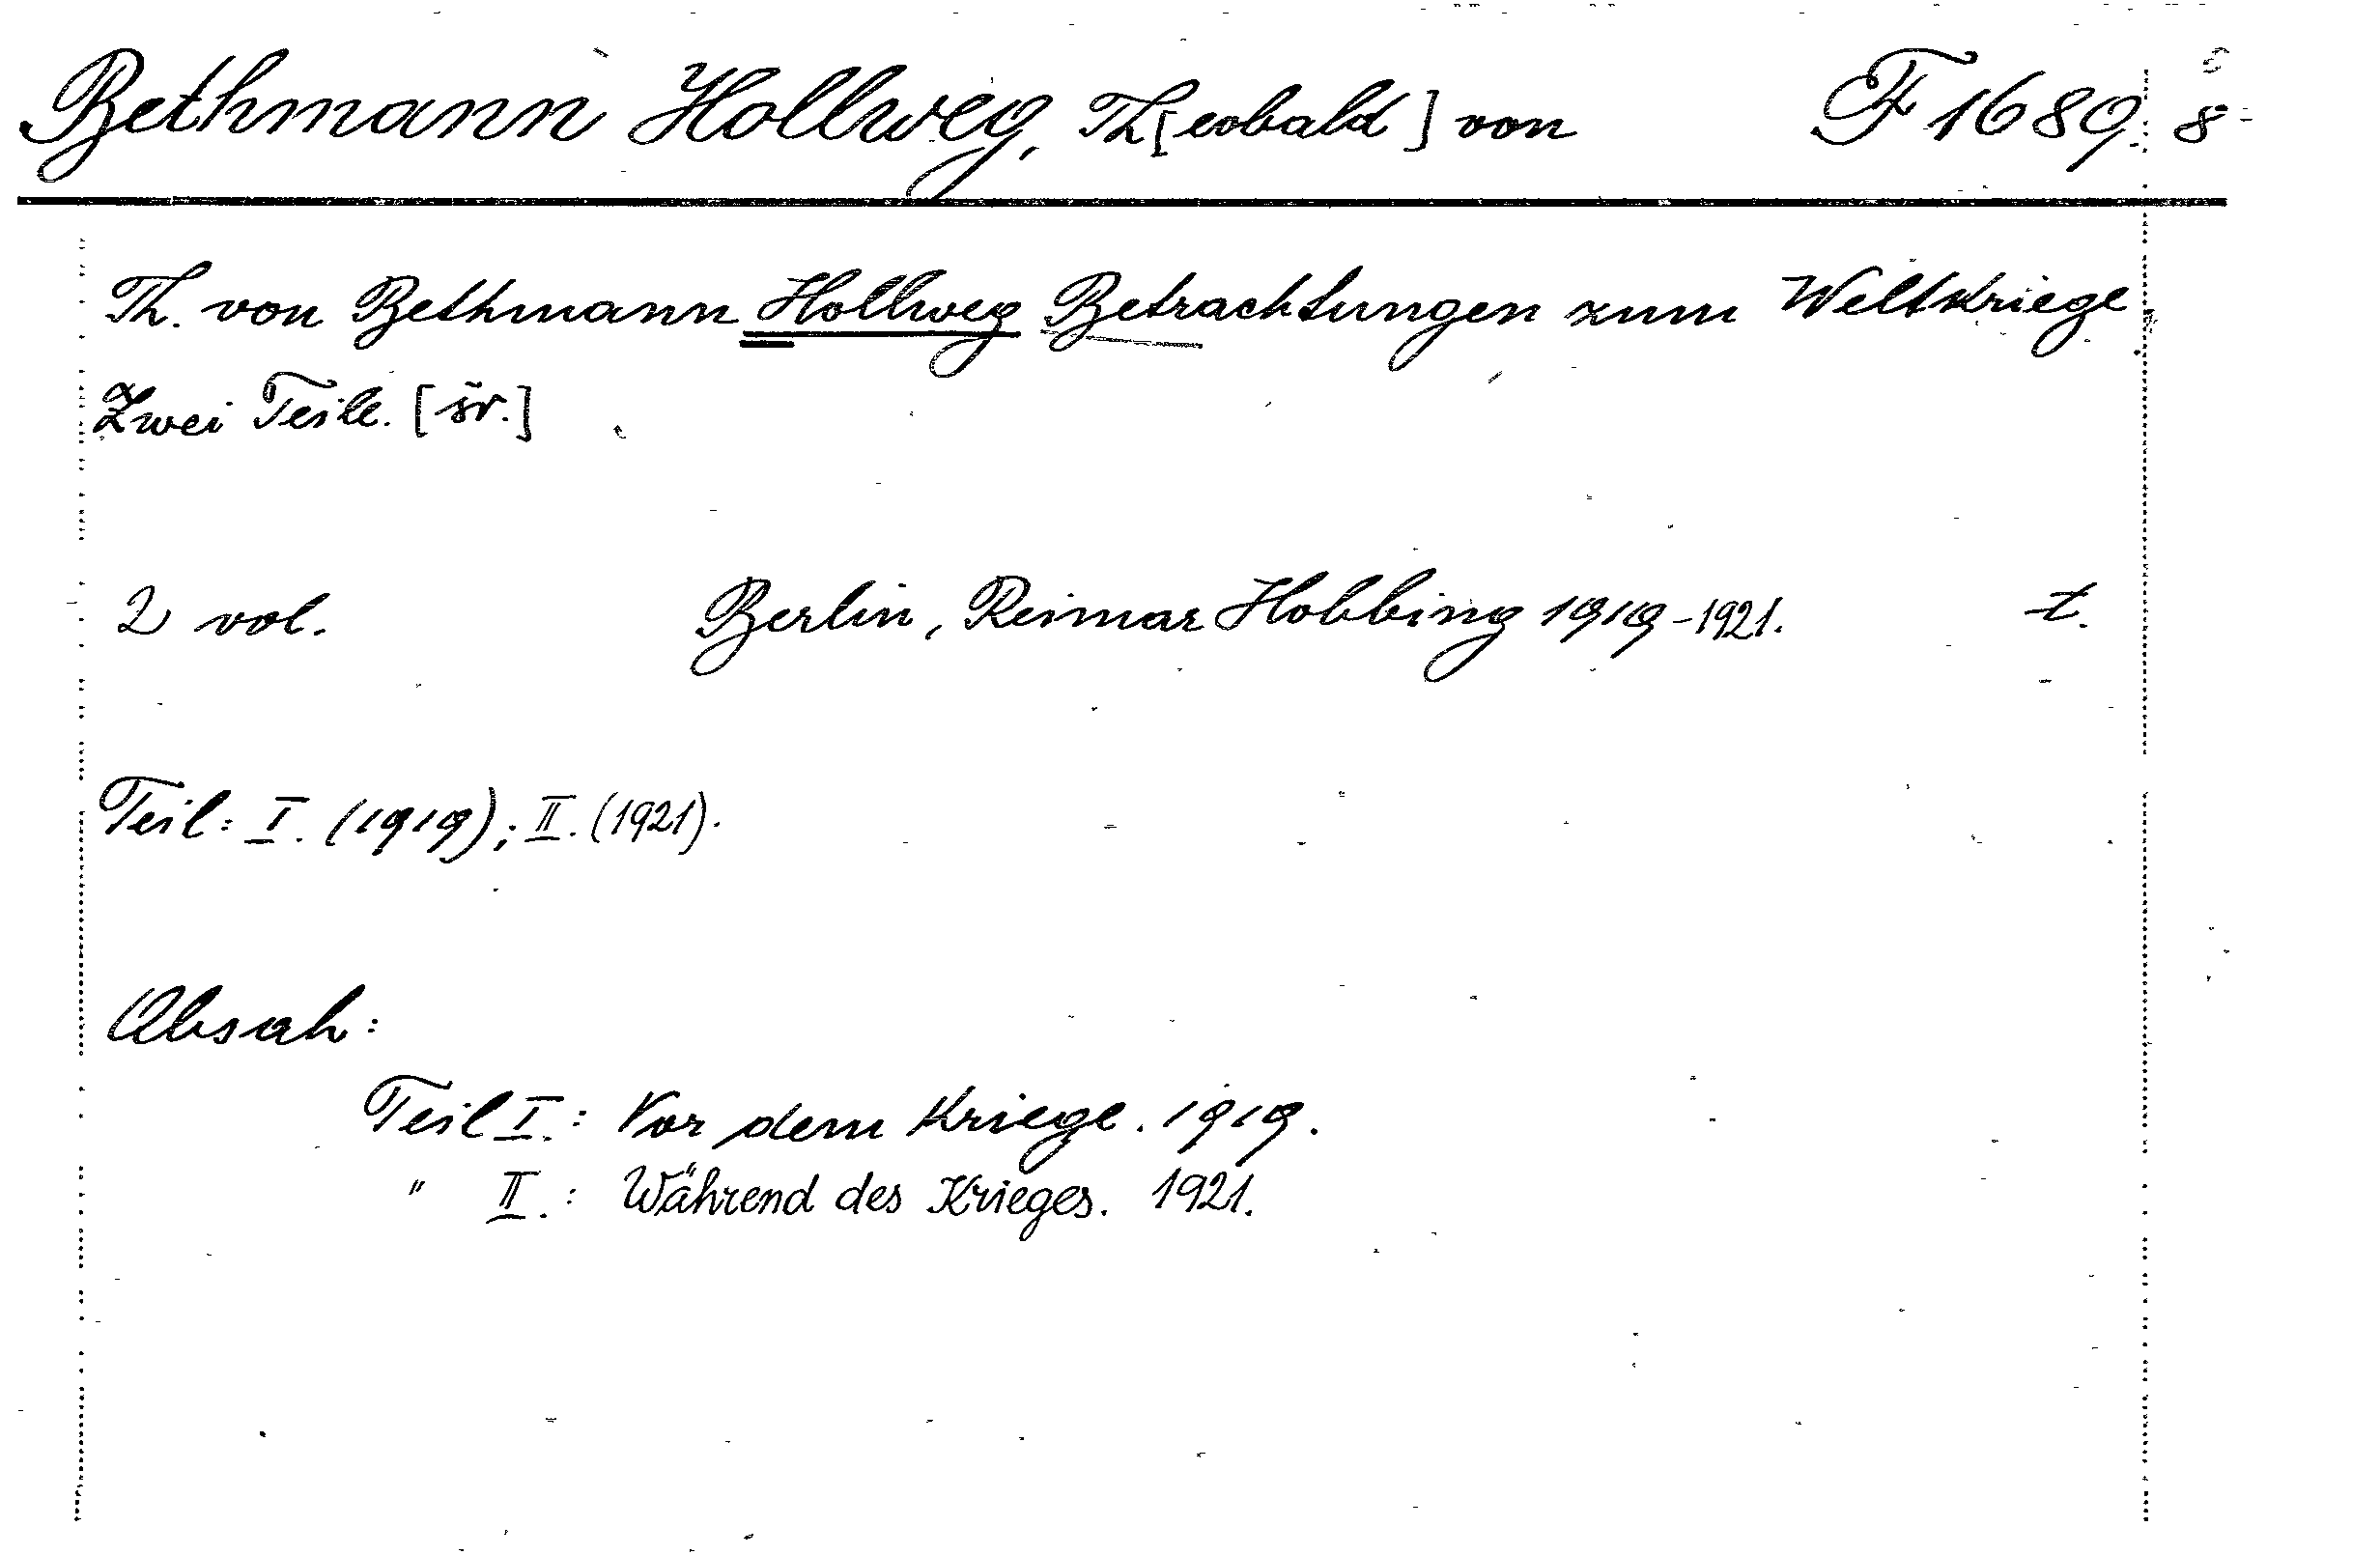 Bethmann Hollweg, Th[eobald] von F 1689. 8
Th. von Bethmann Hollweg Betrachtungen zum Weltkriege.
Zwei Teile. [šv.]
2 vol. Berlin, Reimar Hobbing 1919-1921. t.
Teil: I. (1919); II. (1921).
Obsah:
Teil I.: Vor dem Kriege. 1919.
" II.: Während des Krieges. 1921.